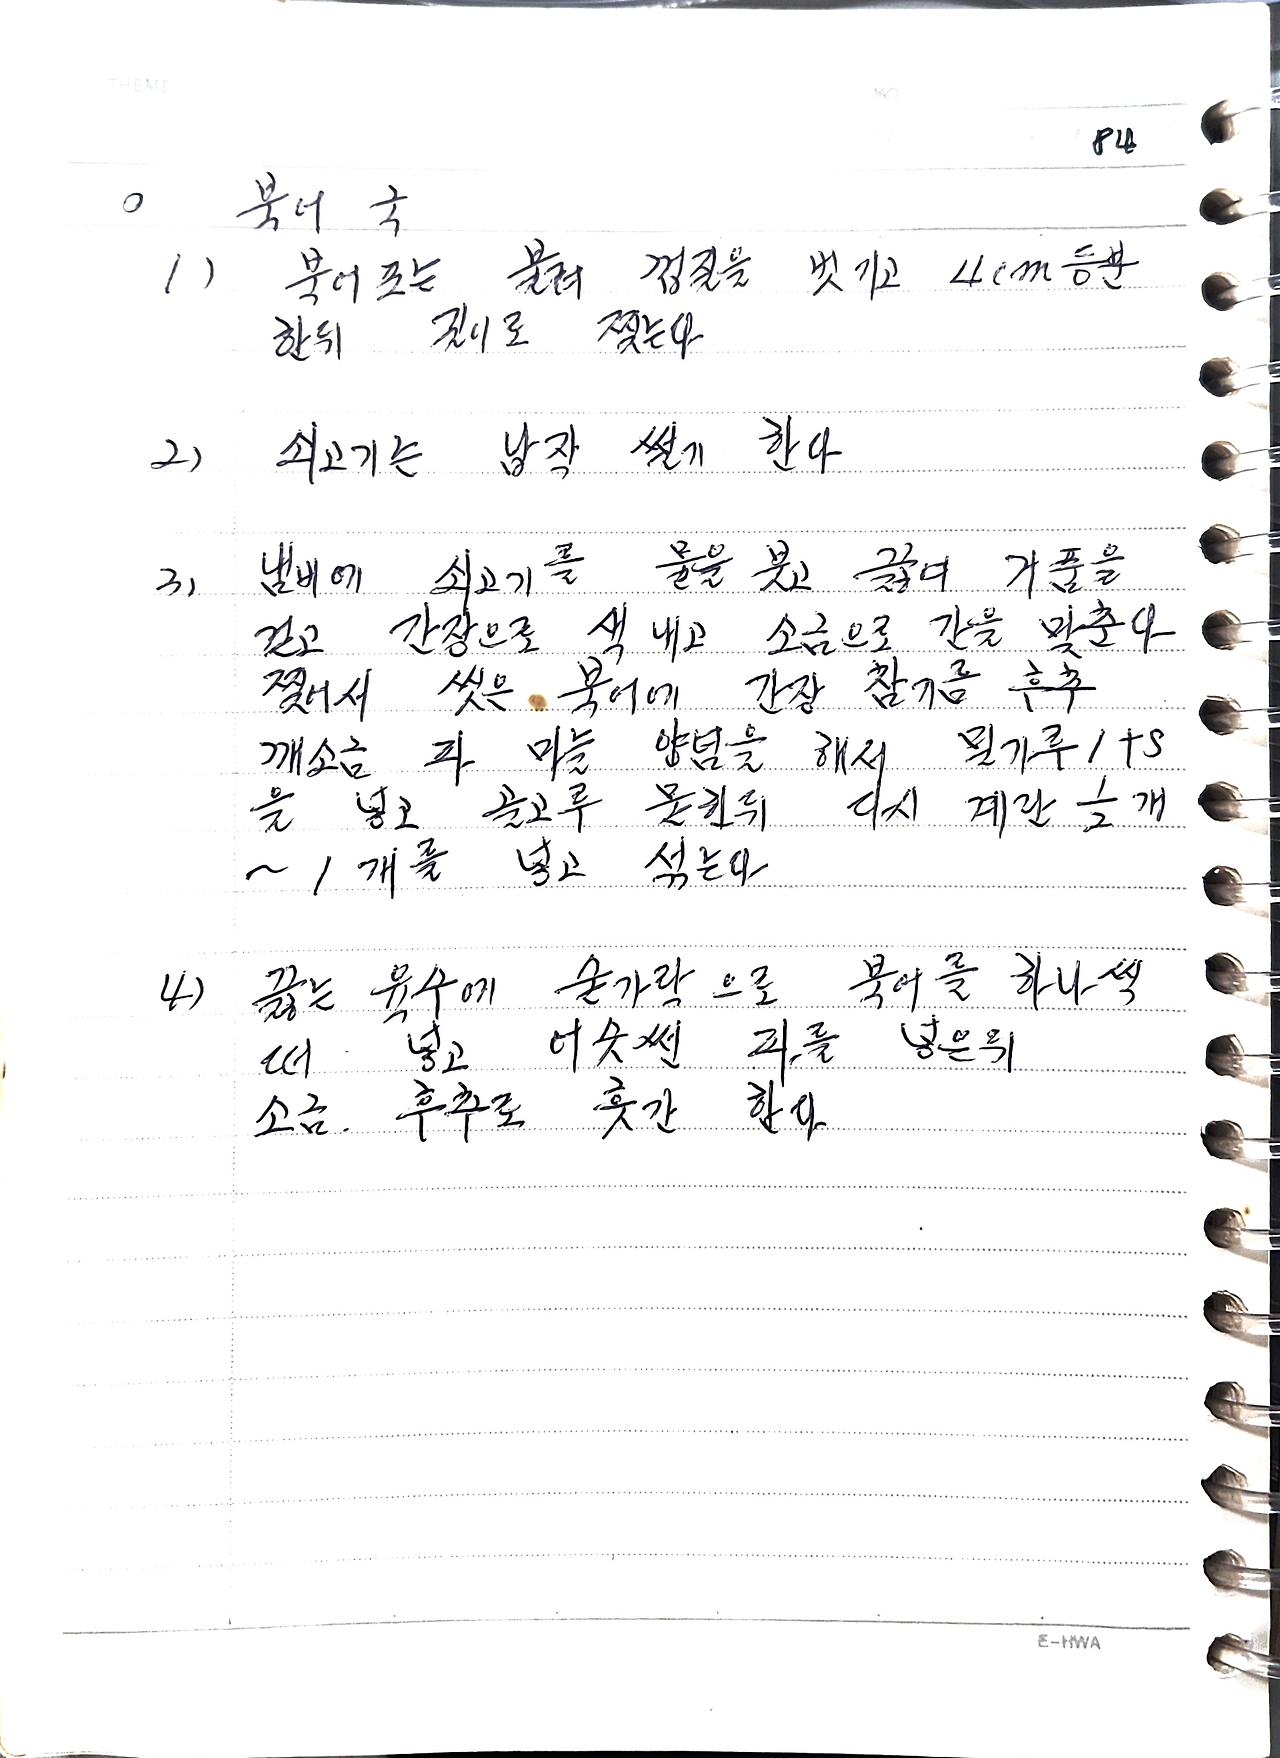 THEME
NO
84
○ 북어 국
1) 북어포는 불려 껍질을 벗기고 4cm등분
한뒤 길이로 찢는다
2) 쇠고기는 납작 썰기 한다
3) 냄비에 쇠고기를 물을 붓고 끓여 거품을
걷고 간장으로 색 내고 소금으로 간을 맞춘다
찢어서 씻은 북어에 간장 참기름 후추
깨소금 파 마늘 양념을 해서 밀가루 1TS
을 넣고 골고루 뭇힌뒤 다시 계란 ½개
~ 1개를 넣고 섞는다
4) 끓는 육수에 숟가락으로 북어를 하나씩
떠 넣고 어슷썬 파를 넣은뒤
소금. 후추로 훗간 한다
E-HWA